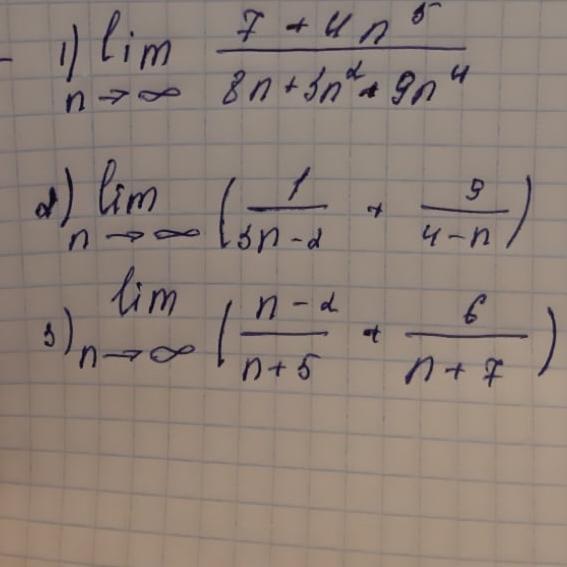 1) lim 7 + 4n⁵ / 8n + 3n² + 9n⁴
n → ∞
2) lim ( 1 / 3n - 2 + 9 / 4 - n )
n → ∞
3) lim ( n - 2 / n + 5 + 6 / n + 7 )
n → ∞